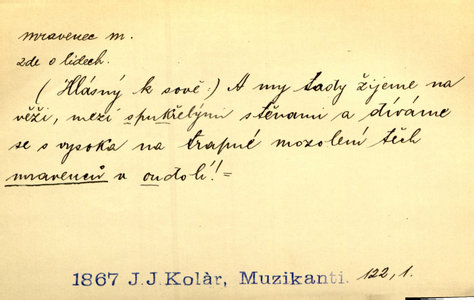 mravenec m.
zde o lidech.
(Hlásný k sově:) A my tady žijeme na
věži, mezi spukřelými stěnami a díváme
se s vysoka na trapné mozolení těch
mravenců v oudolí! =
1867 J.J.Kolàr, Muzikanti. 122,1.